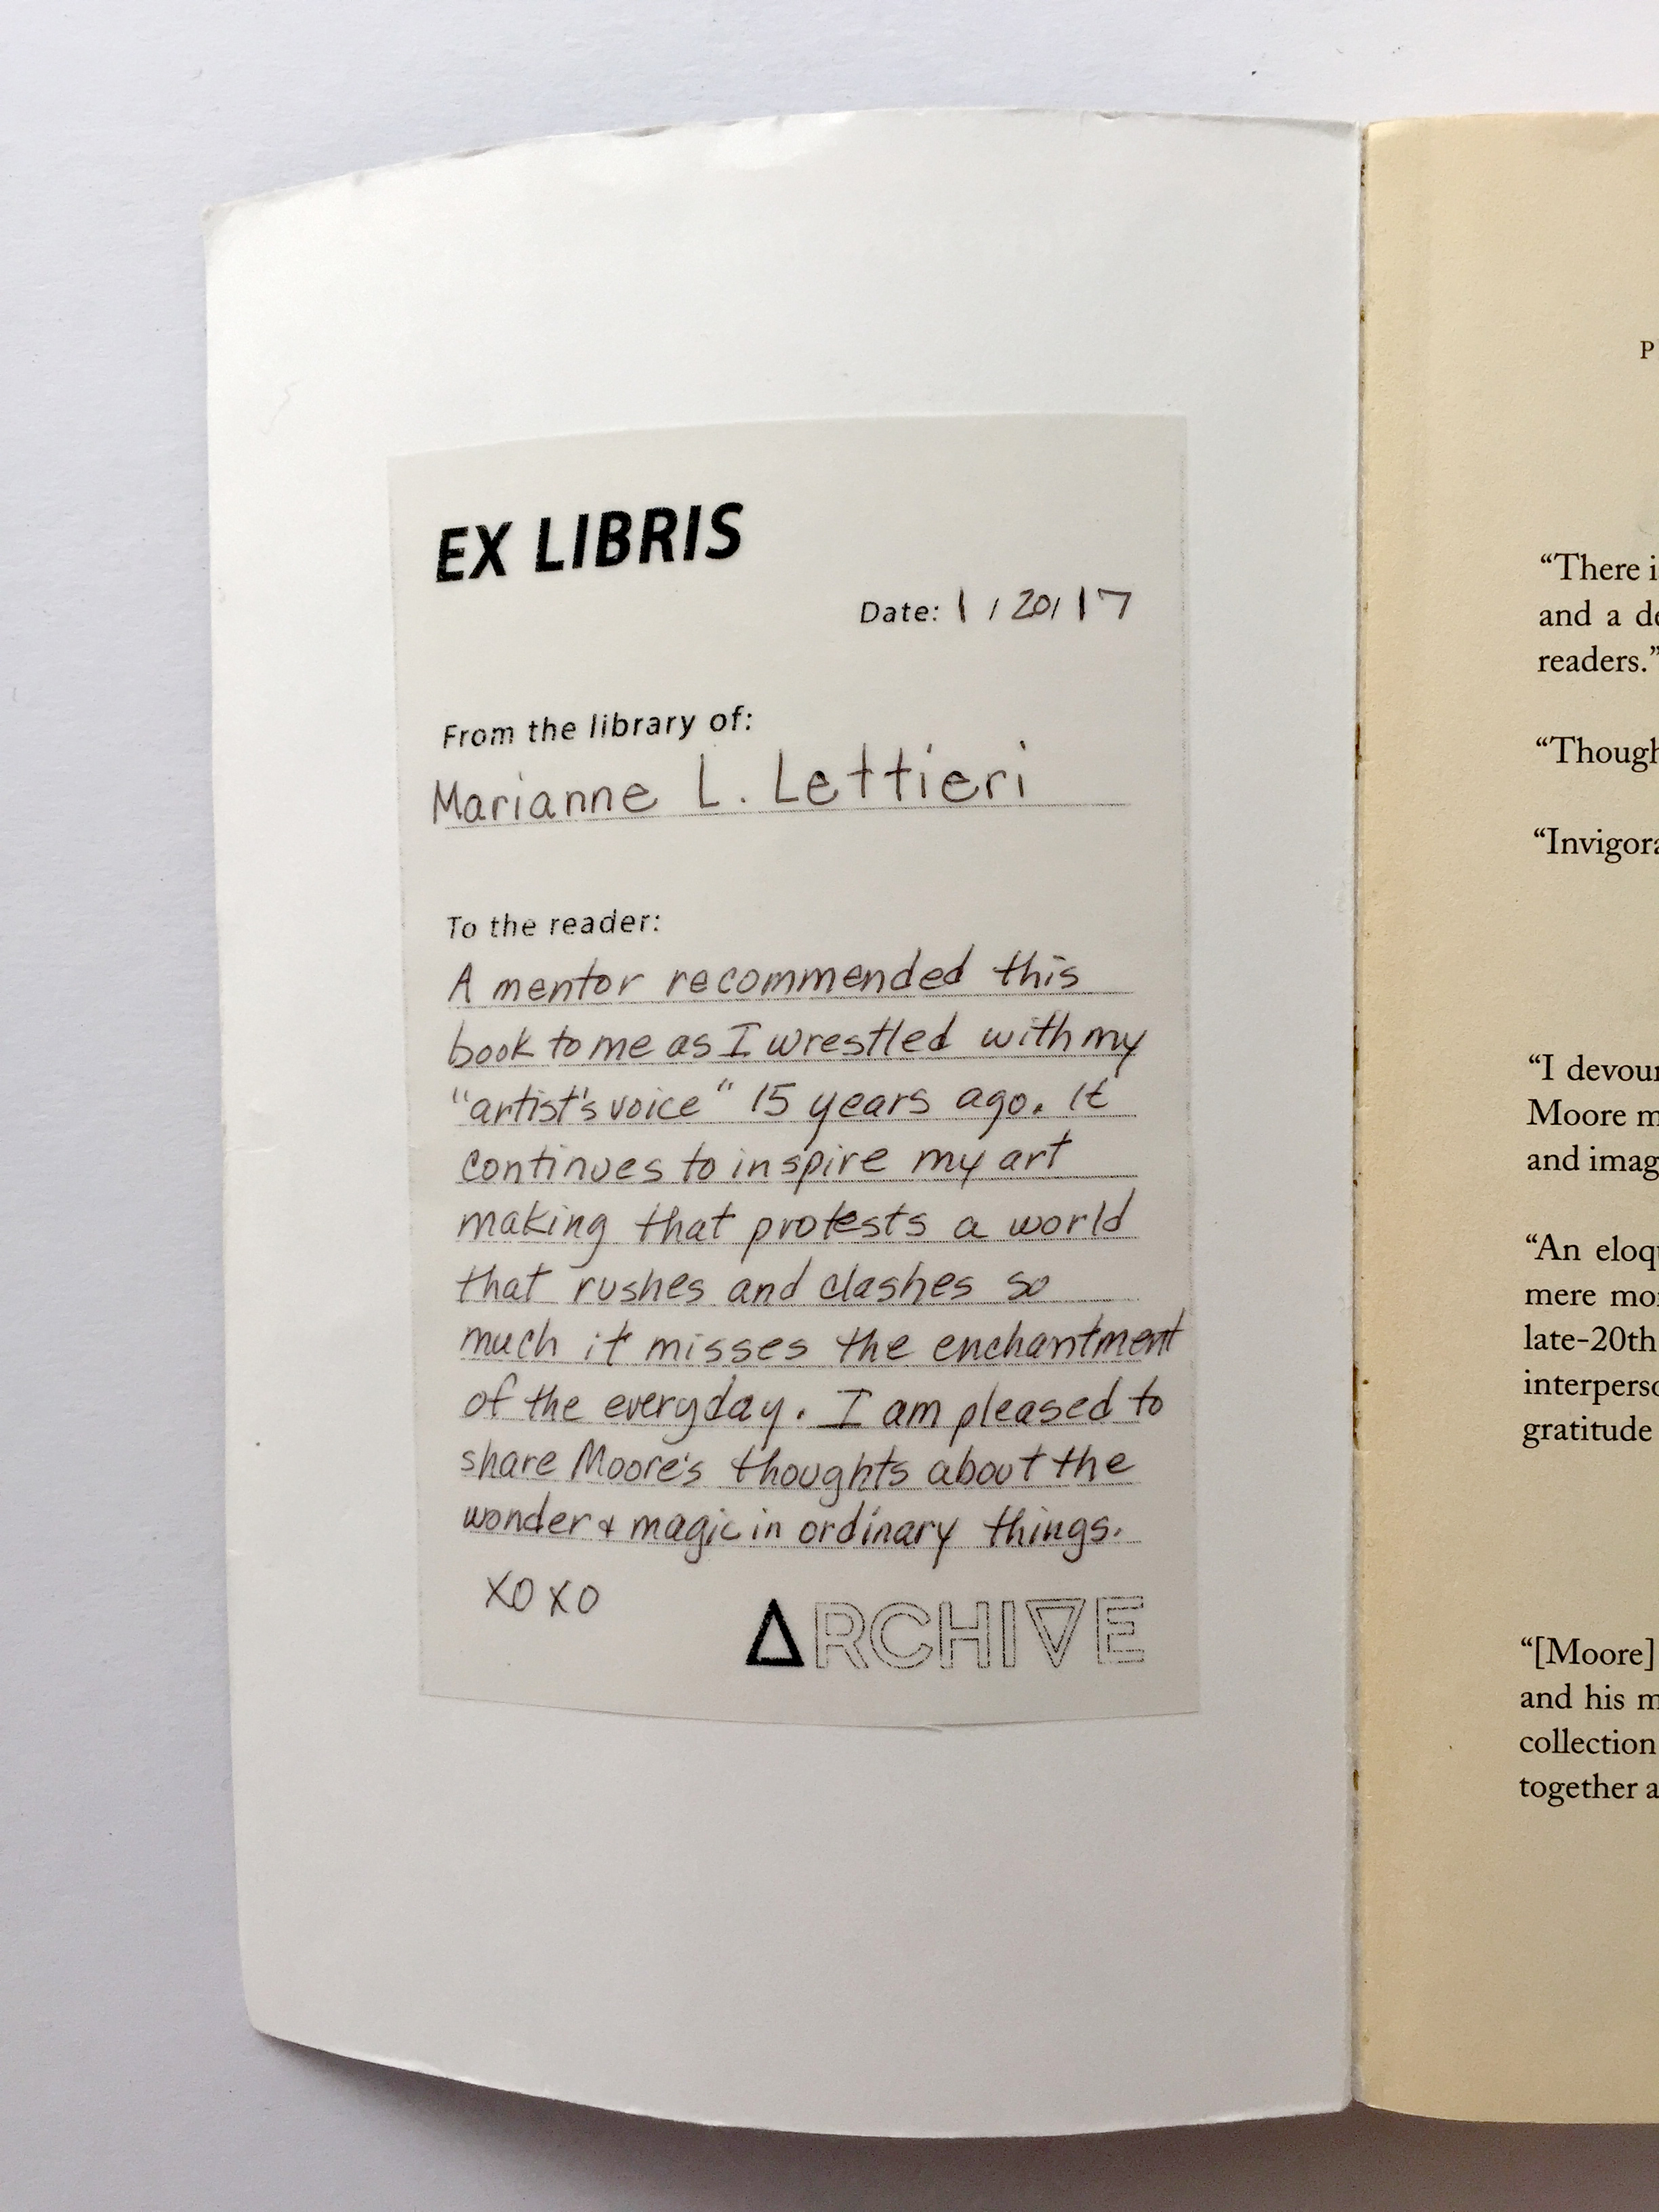 EX LIBRIS
Date: 1/20/17
From the library of:
Marianne L. Lettieri
To the reader:
A mentor recommended this
book to me as I wrestled with my
"artist's voice" 15 years ago. It
continues to inspire my art
making that protests a world
that rushes and clashes so
much it misses the enchantment
of the everyday. I am pleased to
share Moore's thoughts about the
wonder & magic in ordinary things.
XOXO
ARCHIVE
P
“There i
and a de
readers.”
“Though
“Invigora
“I devour
Moore m
and imag
“An eloqu
mere mo
late-20th
interperso
gratitude
“[Moore]
and his m
collection
together a